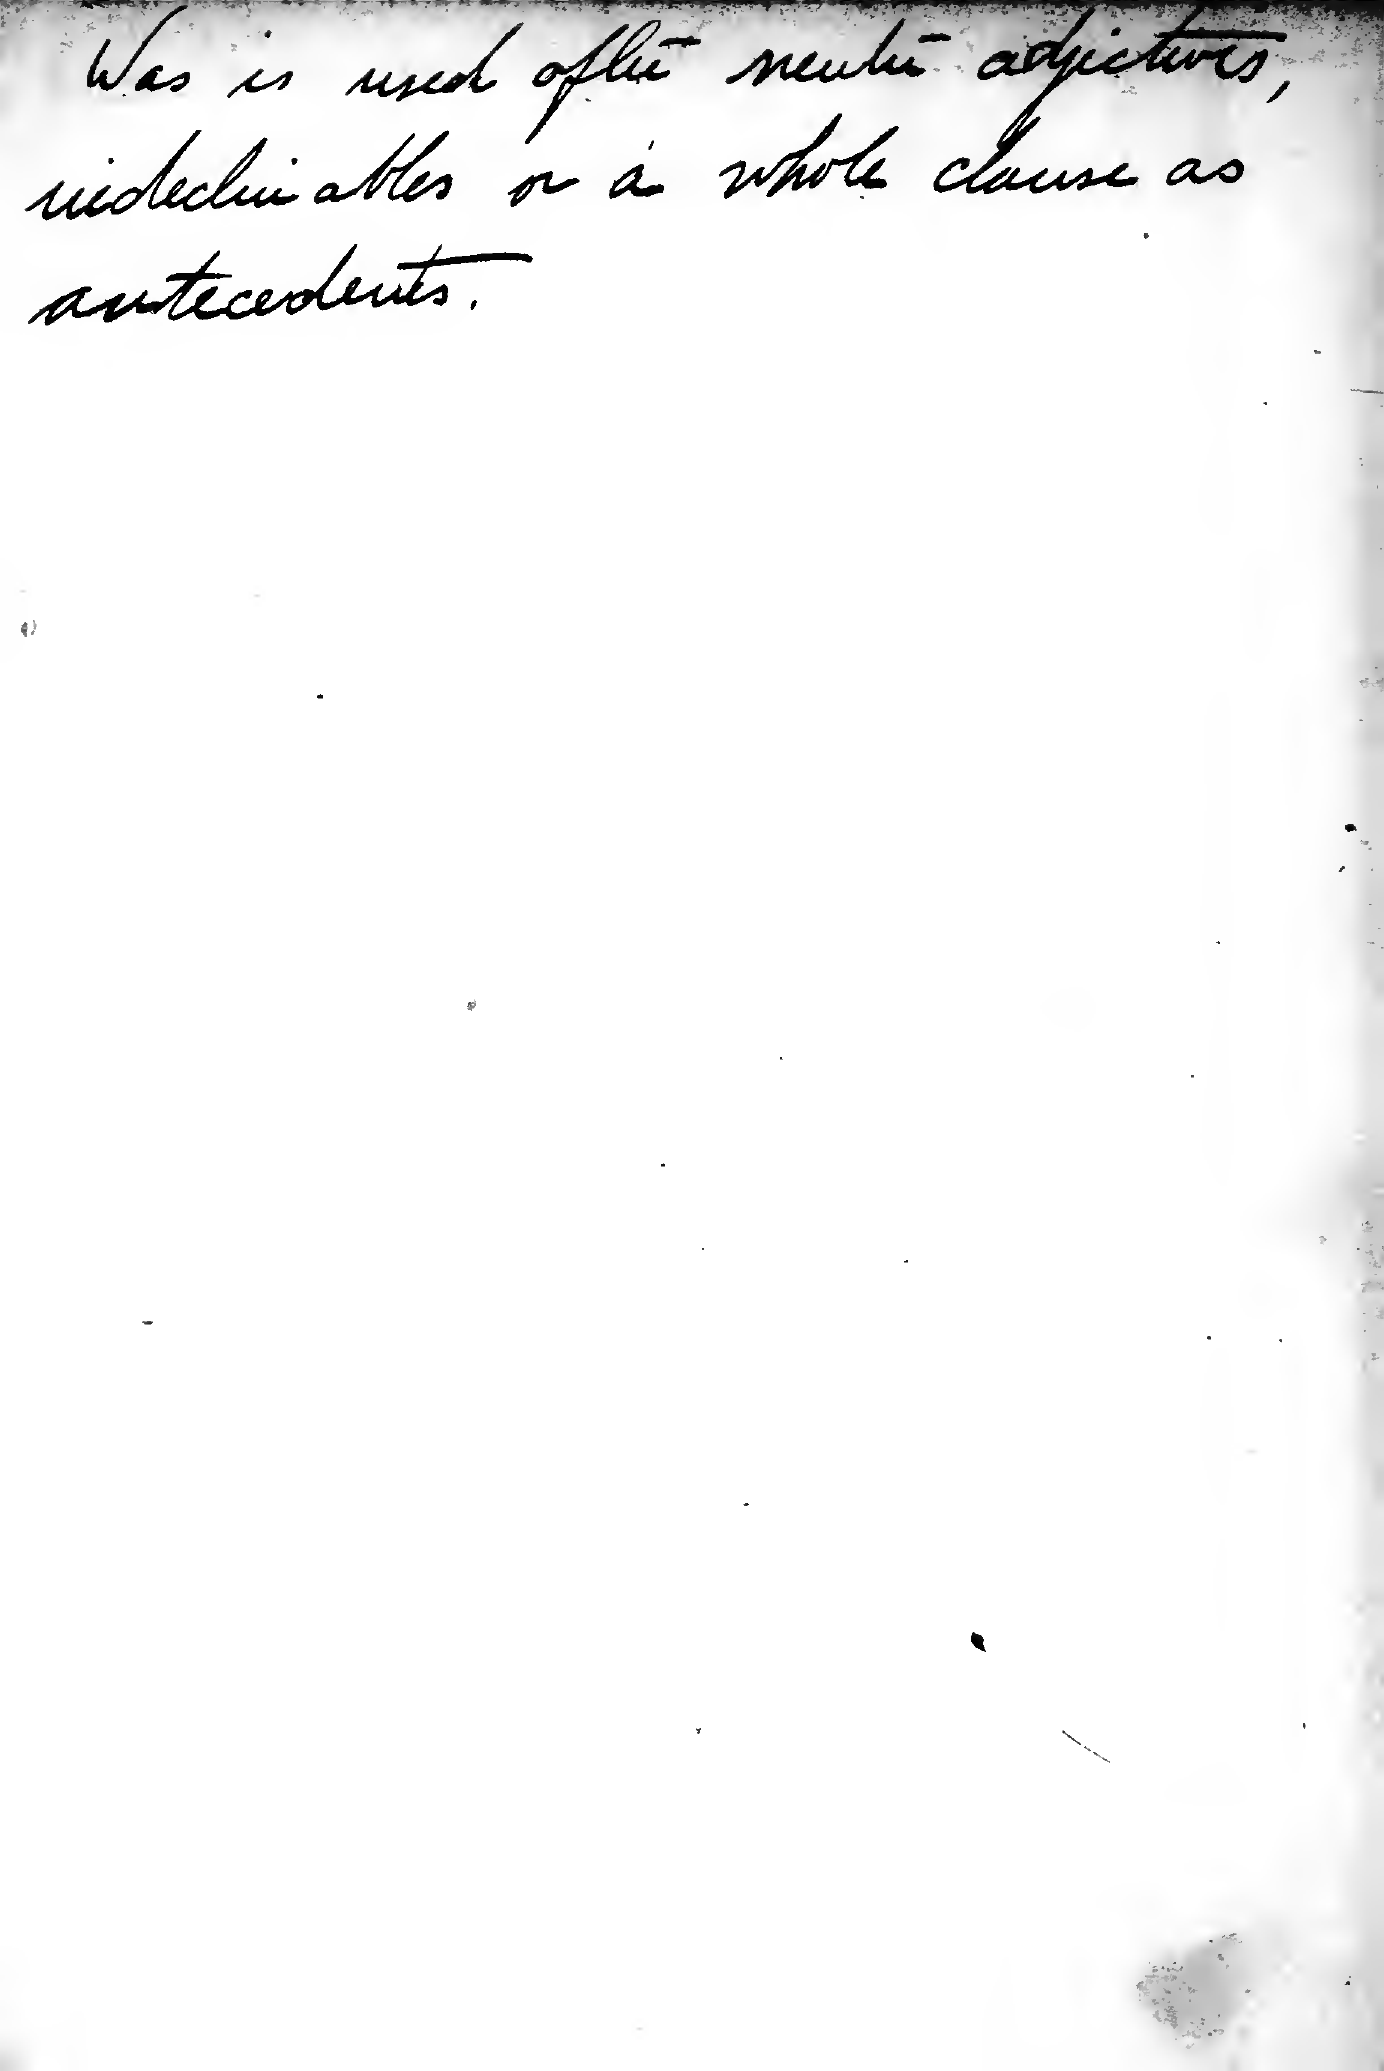 Was is used after neuter adjectives,
indeclinables or a whole clause as
antecedents.